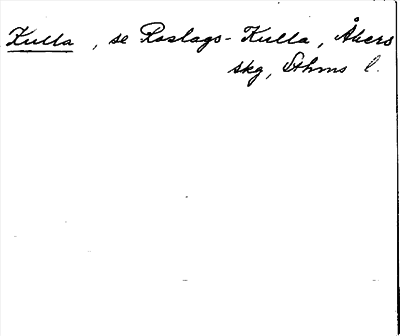 Kulla, se Roslags-Kulla, Åkers
skg, Sthms l.